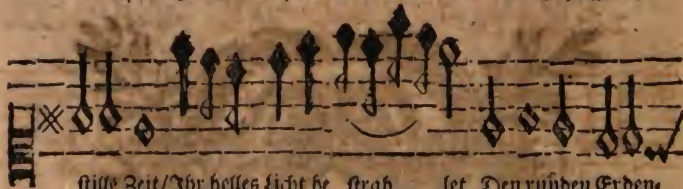 stille Zeit/Ihr helles Licht be strah let Den runden Erden-